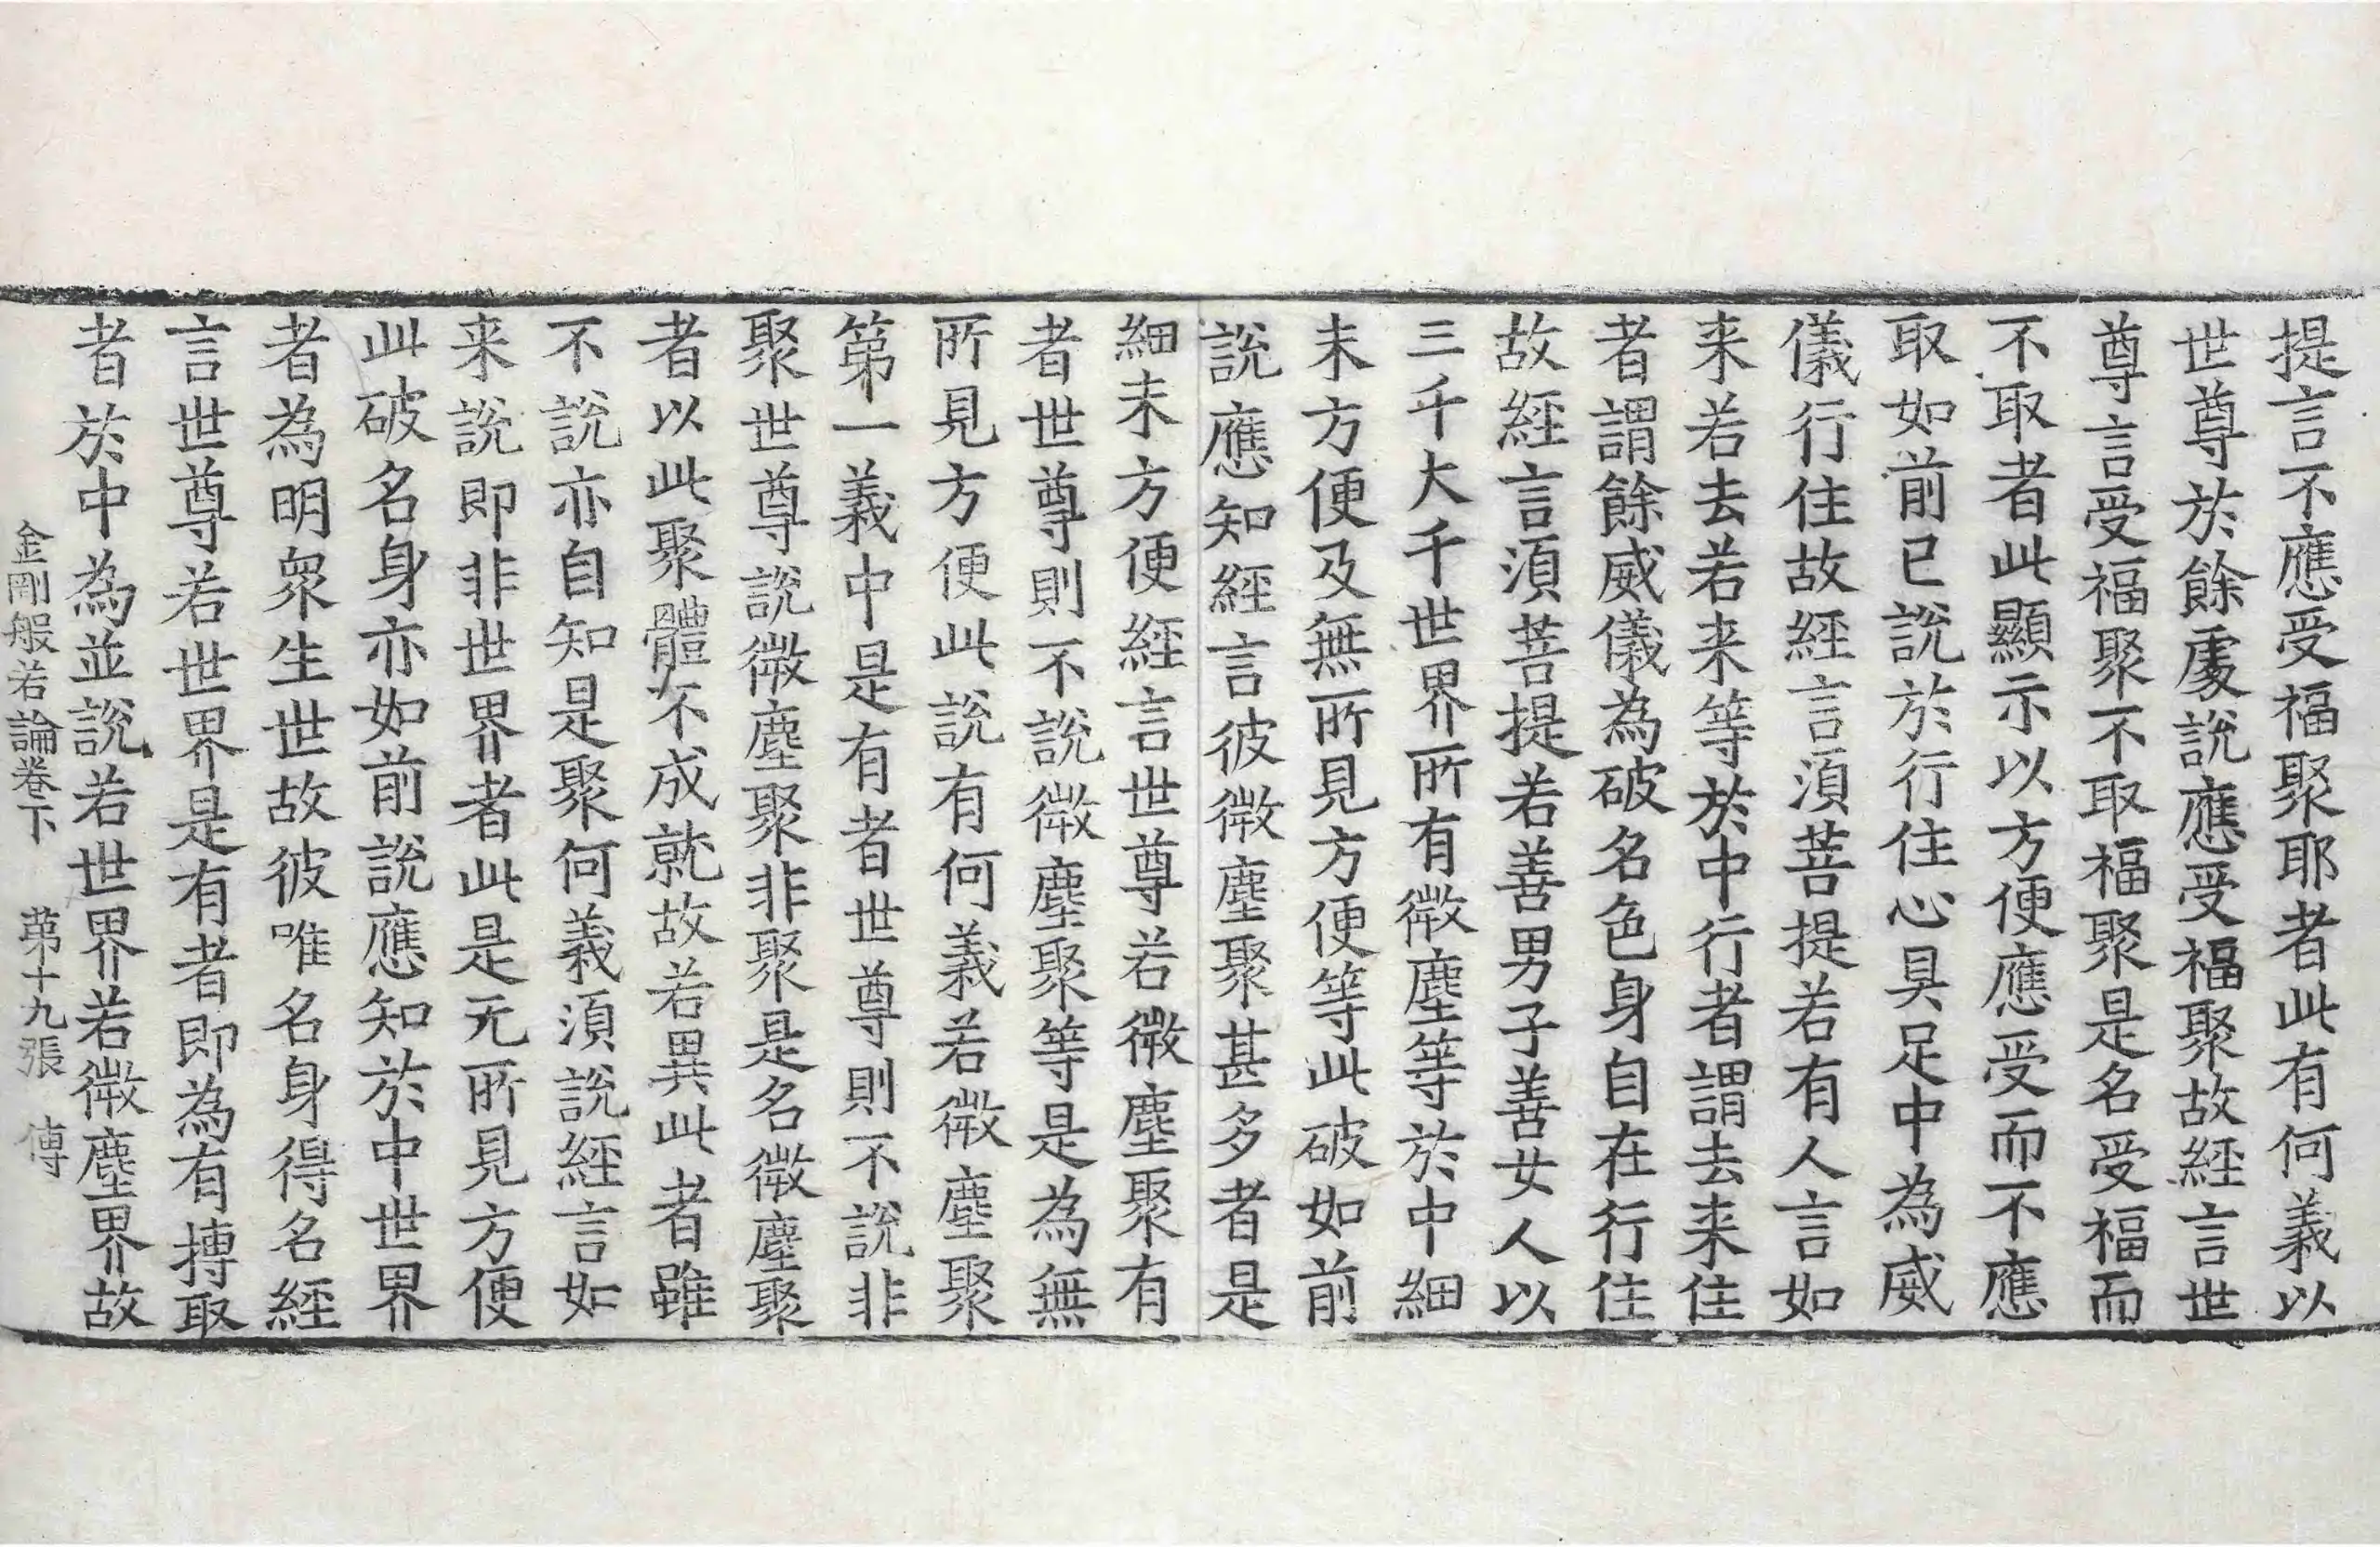 提言不應受福聚耶者此有何義以
世尊於餘處說應受福聚故經言世
尊言受福聚不取福聚是名受福而
不取者此顯示以方便應受而不應
取如前已說於行住心具足中為威
儀行住故經言湏菩提若有人言如
来若去若来等於中行者謂去来住
者謂餘威儀為破名色身自在行住
故經言湏菩提若善男子善女人以
三千大千世界所有微塵等於中細
末方便及無所見方便等此破如前
說應知經言彼微塵聚甚多者是
細末方便經言世尊若微塵聚有
者世尊則不說微塵聚等是為無
所見方便此說有何義若微塵聚
第一義中是有者世尊則不說非
聚世尊說微塵聚非聚是名微塵聚
者以此聚體不成就故若異此者雖
不說亦自知是聚何義湏說經言如
来說即非世界者此是无所見方便
此破名身亦如前說應知於中世界
者為明衆生世故彼唯名身得名經
言世尊若世界是有者即為有摶取
者於中為並說若世界若微塵界故
金剛般若論卷下 苐十九張 傳